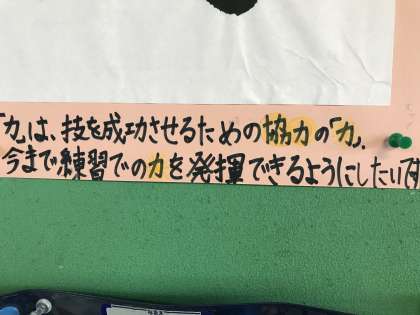 「力」は、技を成功させるための協力の「力」、
今まで練習での力を発揮できるようにしたい